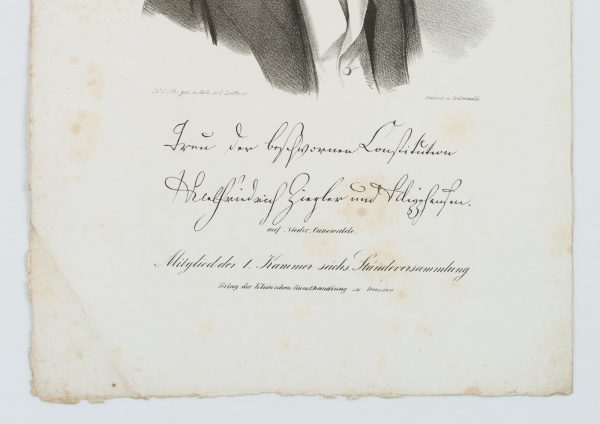 Treu der beschwornen Constitution
Friedrich Ziegler und Klipphausen.
auf Nieder Cunewalde.
Mitglied der 1. Kammer sächs Ständeversammlung
Verlag der Kunsthandlung in Dresden